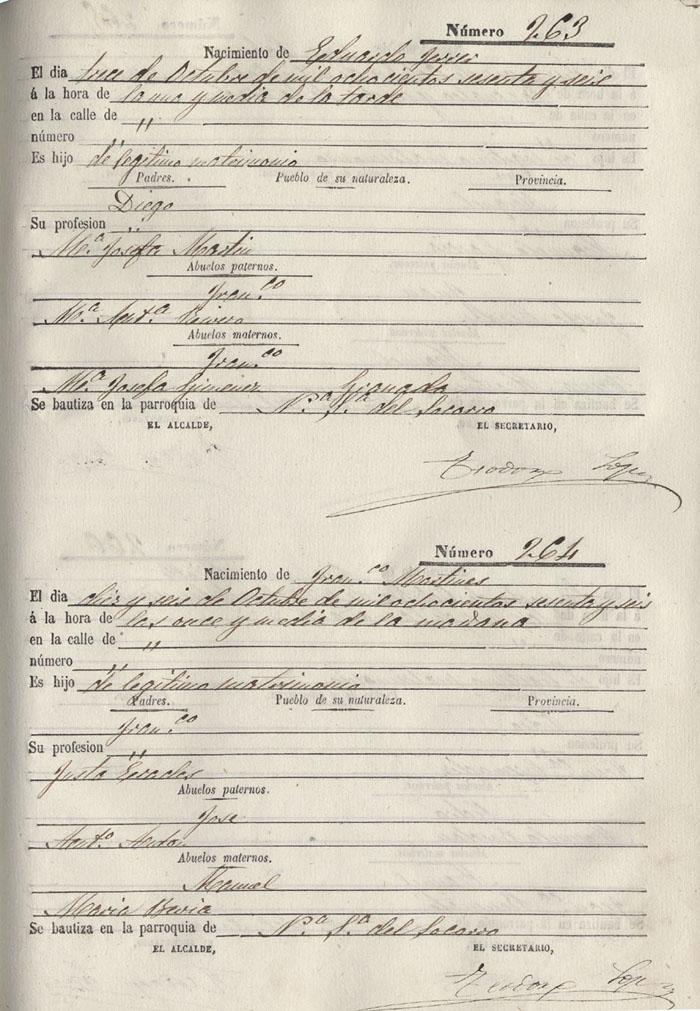 Número 263
Nacimiento de Eduardo Ferrer
El dia trece de Octubre de mil ochocientos sesenta y seis
á la hora de la una y media de la tarde
en la calle de "
número "
Es hijo de legitimo matrimonio
Padres. Pueblo de su naturaleza. Provincia.
Diego
Su profesion "
Mª Josefa Martin
Abuelos paternos.
Franco
Mª Antª Rivero
Abuelos maternos.
Franco
Mª Josefa Gimenez Granada
Se bautiza en la parroquia de Nª Sª del Socorro
EL ALCALDE, EL SECRETARIO,
Teodoro Lopez
Número 264
Nacimiento de Franco Martines
El dia diez y seis de Octubre de mil ochocientos sesenta y seis
á la hora de las once y media de la mañana
en la calle de "
número "
Es hijo de legitimo matrimonio
Padres. Pueblo de su naturaleza. Provincia.
Franco
Su profesion "
Justa
Abuelos paternos.
Jose
Antª
Abuelos maternos.
Manuel
Maria
Se bautiza en la parroquia de Nª Sª del Socorro
EL ALCALDE, EL SECRETARIO,
Teodoro Lopez